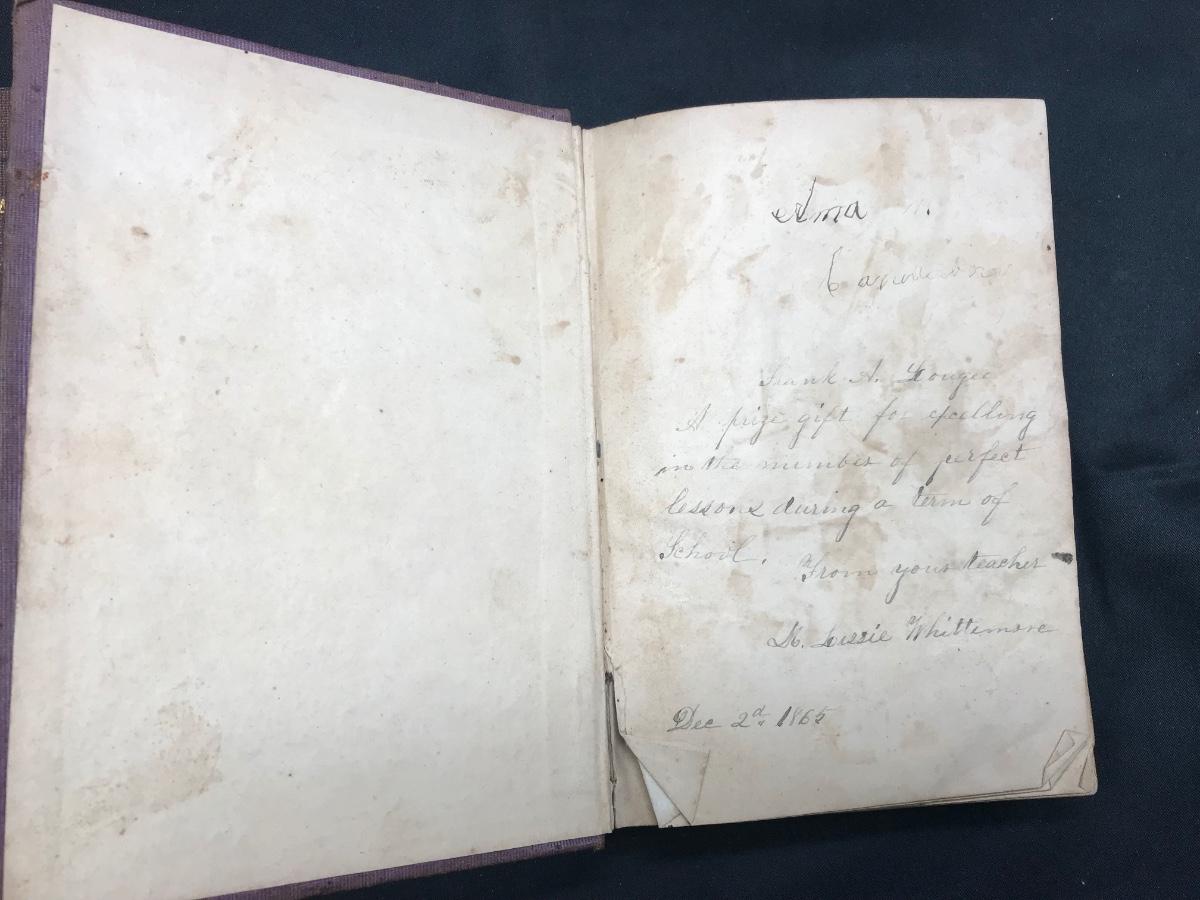 Alma
Frank A. Lougee
A prize gift for excelling
in the number of perfect
lessons during a term of
School.
From your teacher
M. Lissie Whittemore
Dec 2d 1865